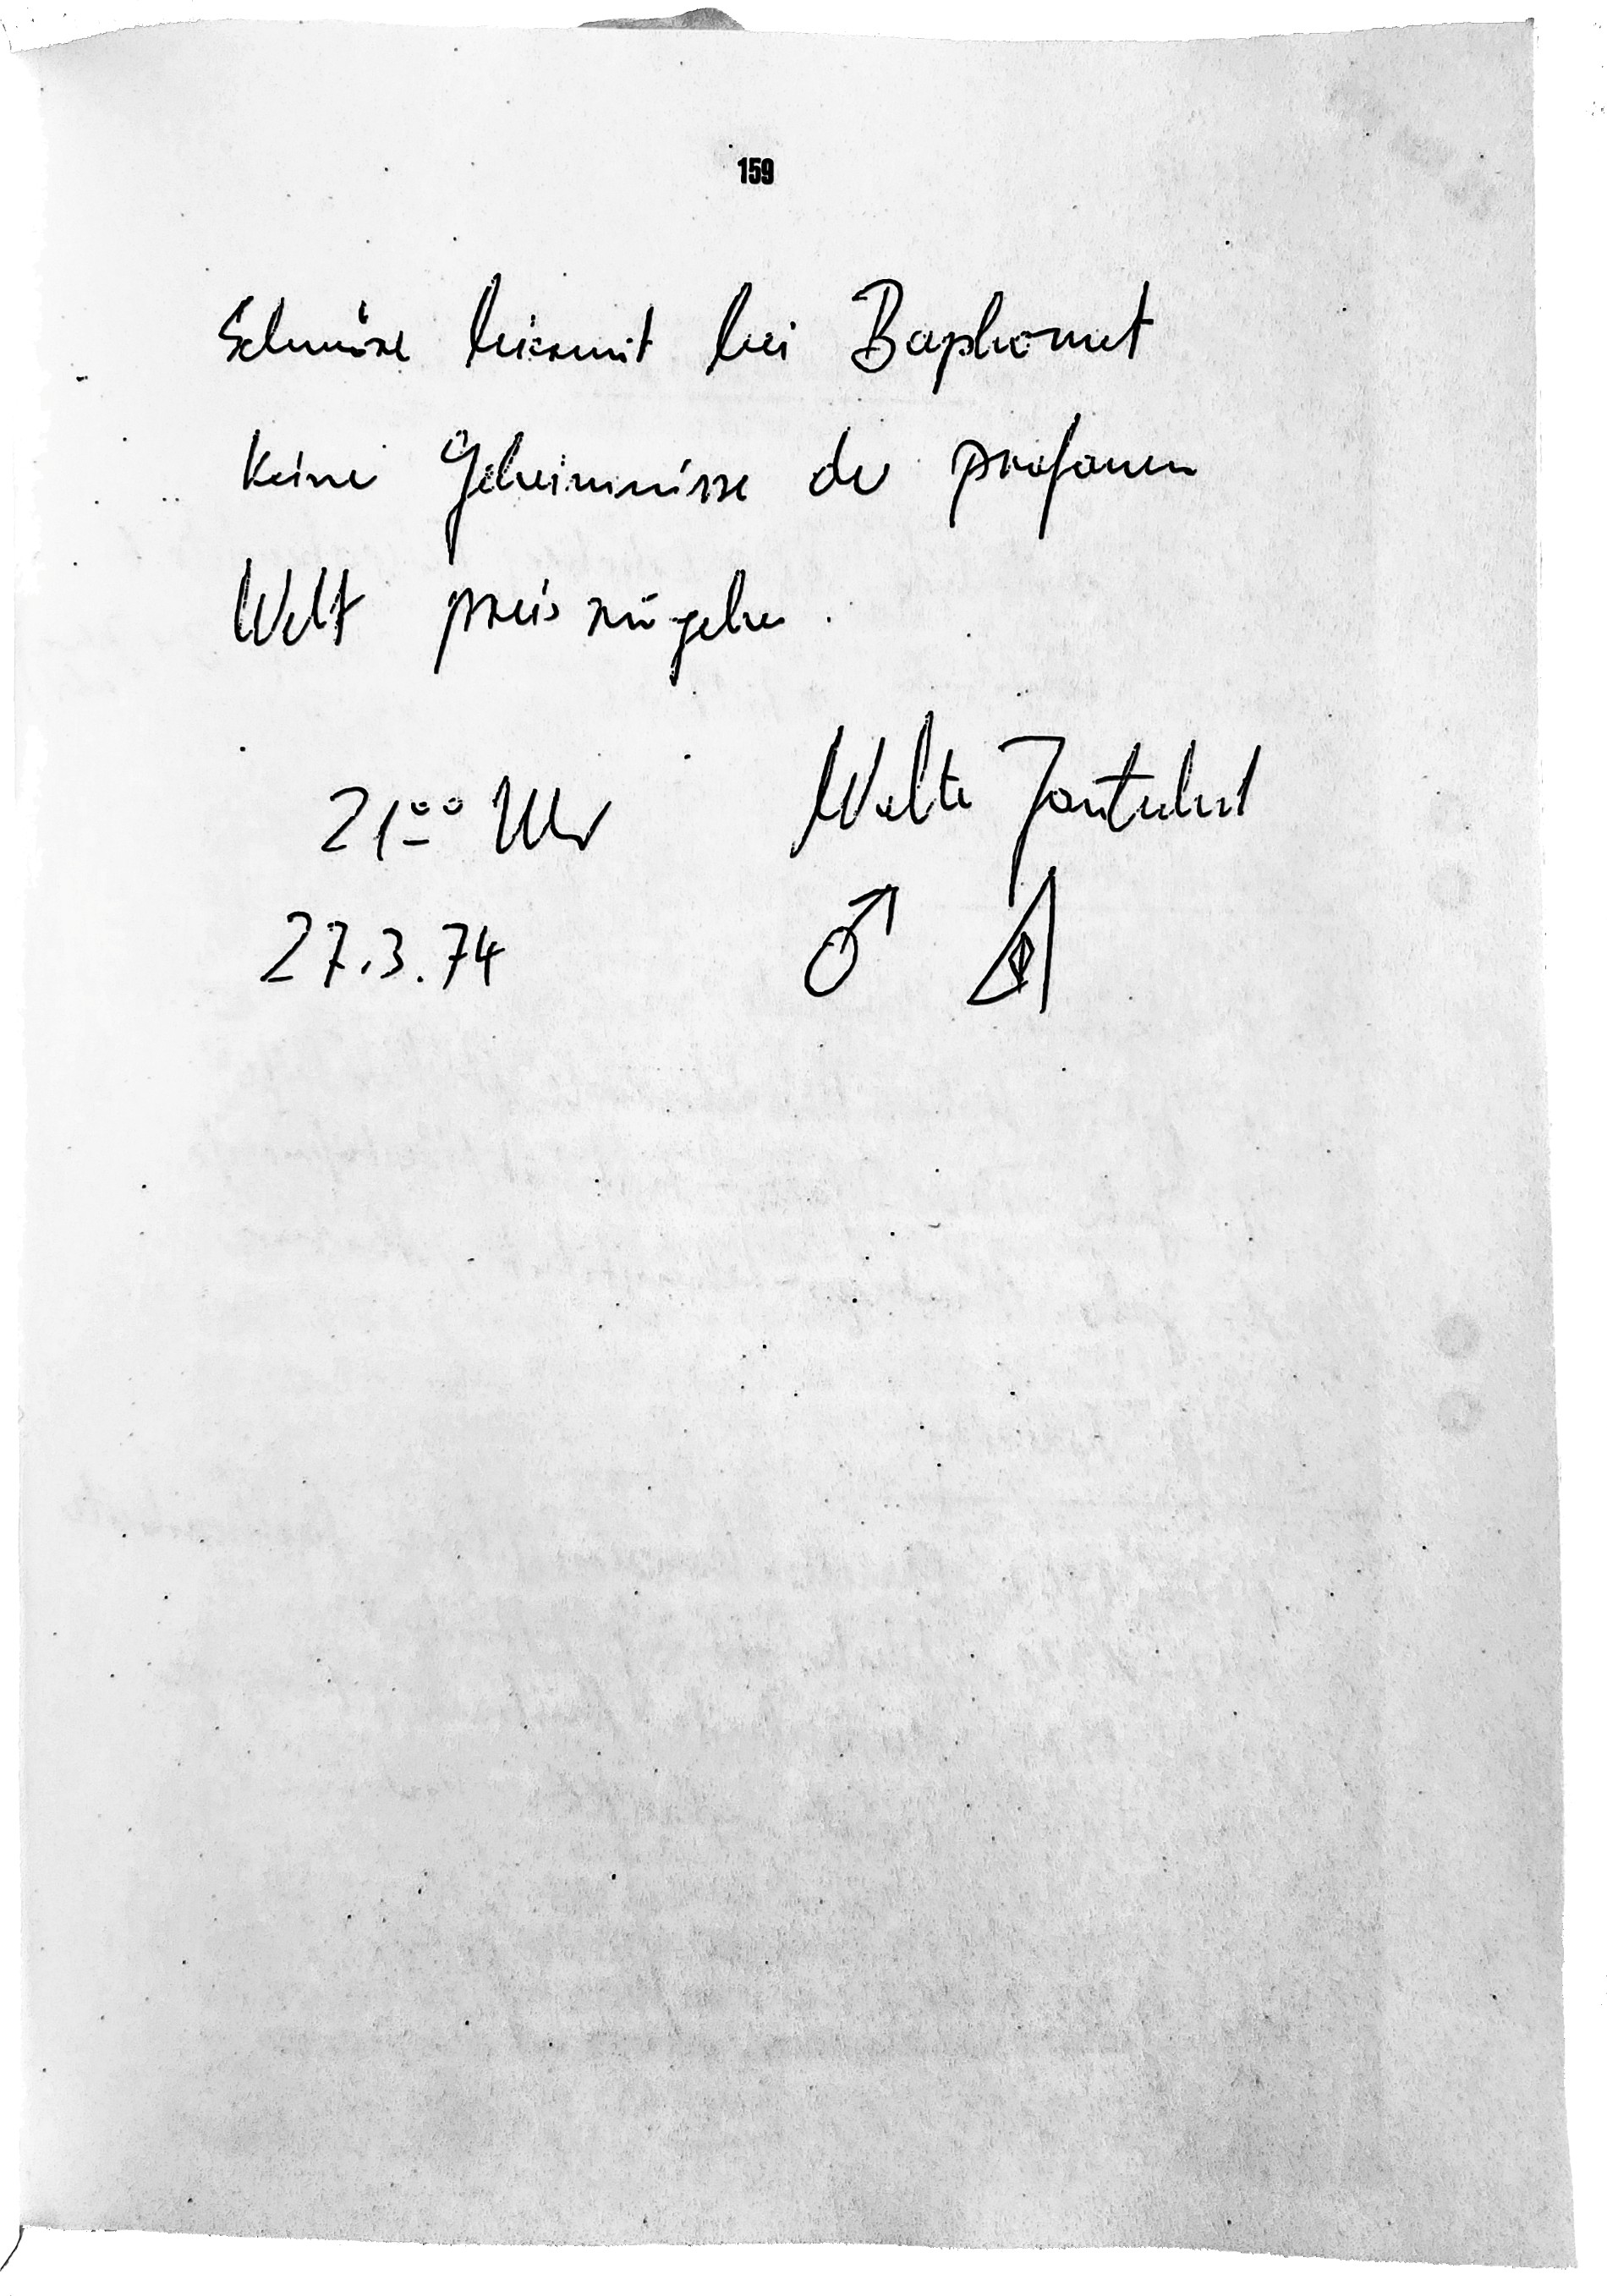 159
Schwöre hiermit bei Baphomet
keine Geheimnisse der profanen
Welt preiszugeben.
21⁰⁰ Uhr Walter
27.3.74 ♂